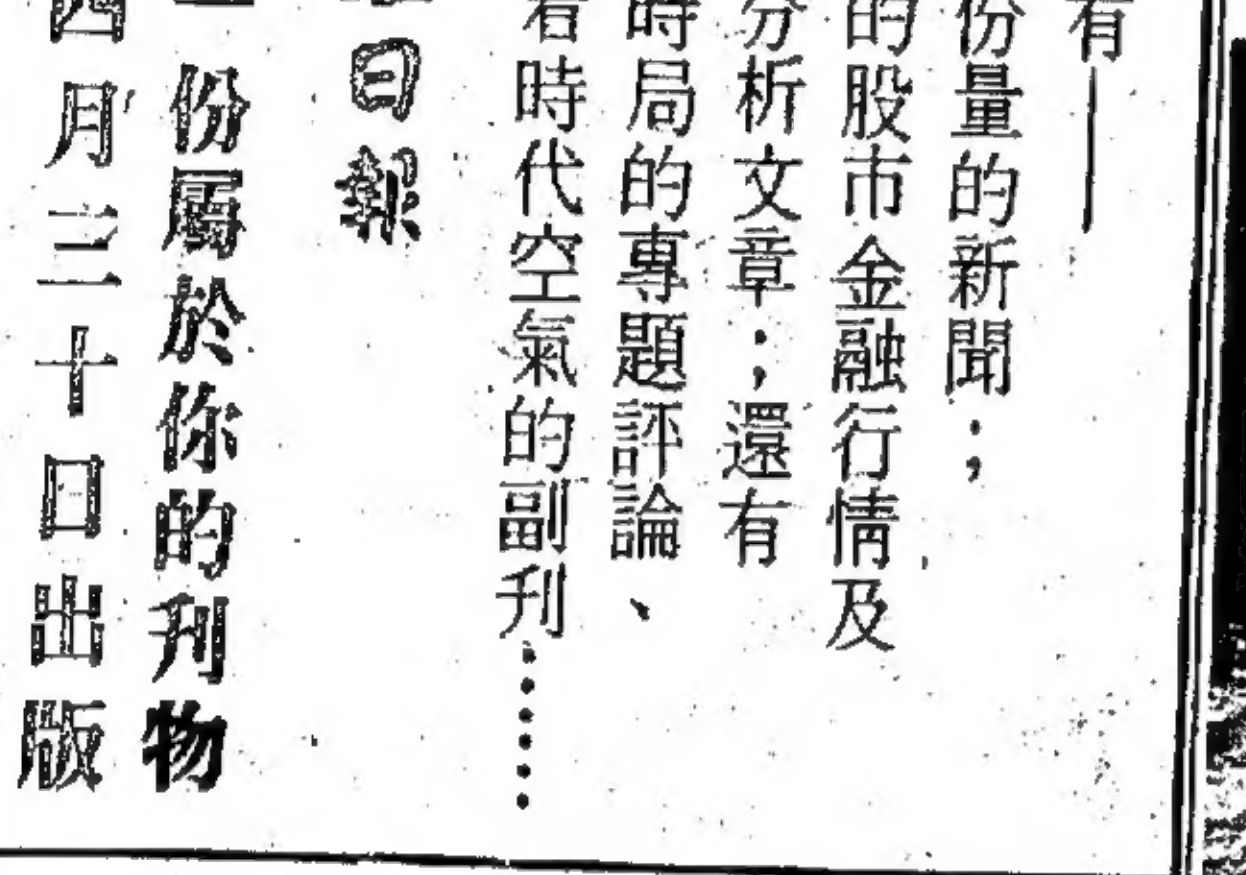 有——
份量的新聞；
的股市金融行情及
分析文章；還有
時局的專題評論、
着時代空氣的副刊……
日報
一份屬於你的刊物
四月二十日出版